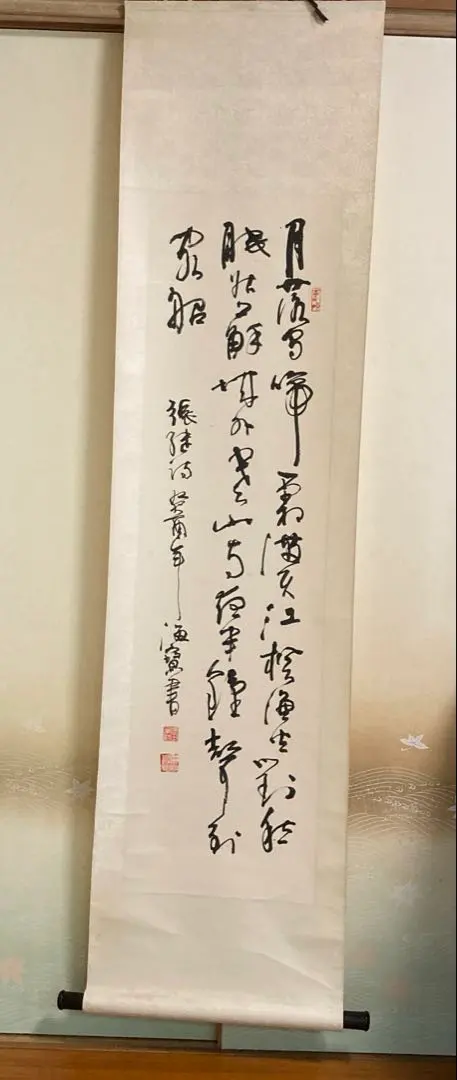 月落烏啼霜滿天江楓漁火對愁
眠姑蘇城外寒山寺夜半鐘聲到
客船
張继诗癸酉年海寶書